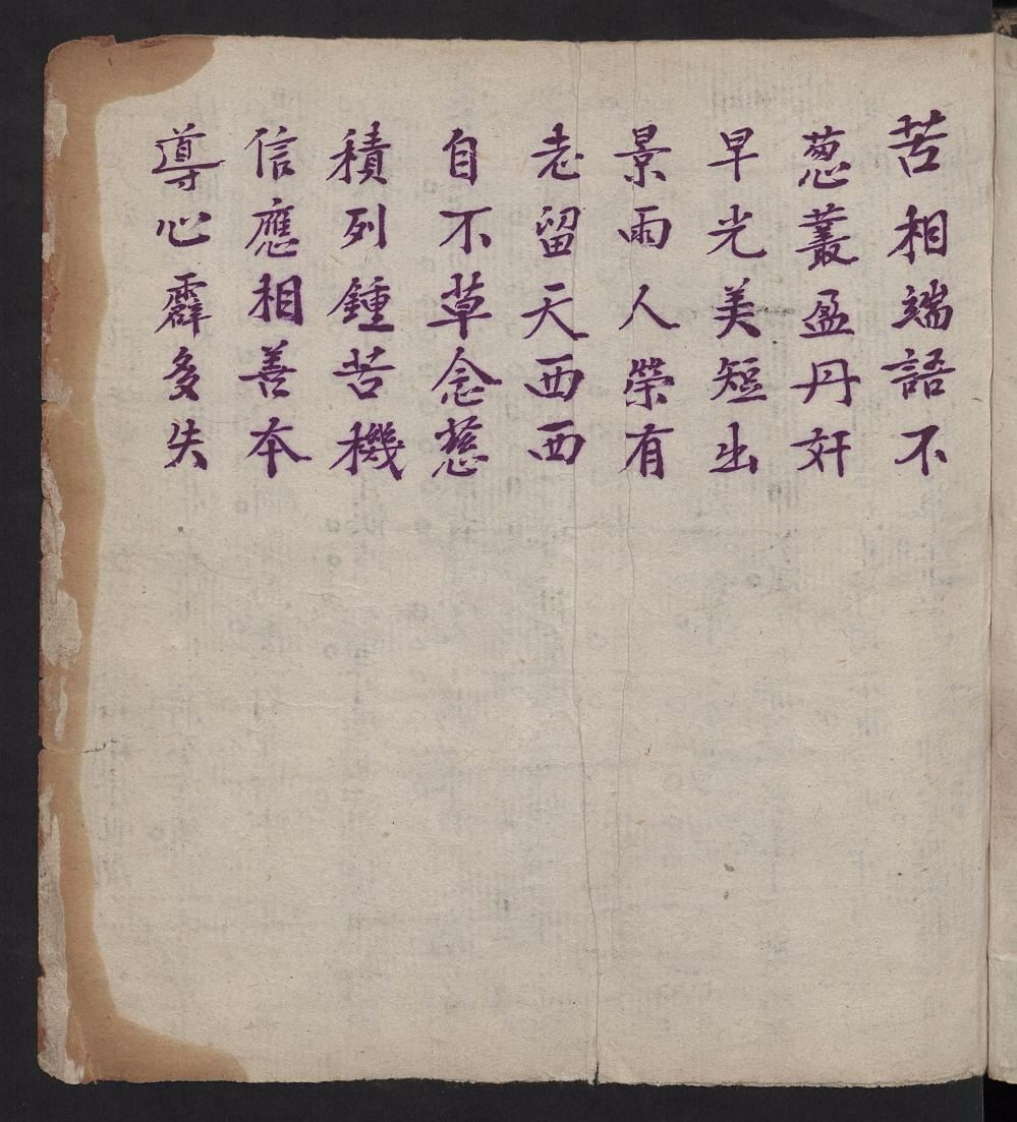 苦相端語不
葱叢盈丹奸
早光美短出
景雨人榮有
老留天西西
自不草念慈
積列鍾苦機
信應相善本
導心霹多失